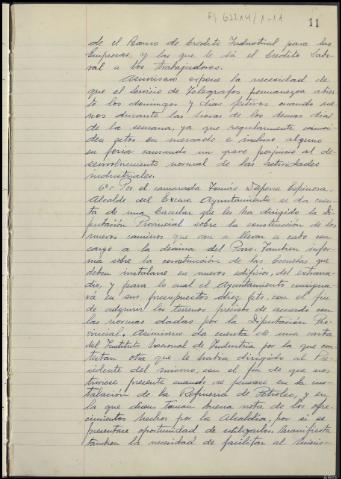 11
de el Banco de Credito Industrial para las
Empresas, y las que le dá el Credito Labo-
ral a los trabajadores.
Asimismo expone la necesidad de
que el Servicio de Telegrafos permanezca abier
to los domingos y dias festivos cuando me
nos durante las horas de los demas dias
de la semana, ya que regularmente
den estos en mercado e incluso alguna
en feria causando un gran perjuicio al de
senvolvimiento normal de las actividades
industriales.
6º Por el camarada Tomás Dapena Espinosa
Alcalde del Excmo Ayuntamiento se da cuen
ta de una Circular que les ha dirigido la Di
putación Provincial sobre la construcción de los
nuevos caminos que van a llevar a cabo con
cargo a la décima del Paro. Tambien infor
ma sobre la construcción de las Escuelas que
deben instalarse en nuevos edificios, del extrarra
dio, y para lo cual el Ayuntamiento consigna
rá en sus presupuestos con el fin
de adquirir los terrenos precisos de acuerdo con
las normas dadas por la Diputación Pro
vincial. Asimismo da cuenta de una nota
del Instituto Nacional de Industria por la que con
testan otra que le habia dirigido al Pre
sidente del mismo, con el fin de que nos
tuviese presente cuando se pensase en la ins
talación de la Refineria de Petroleo, y en
la que dicen toman buena nota de los ofre
cimientos hechos por la Alcaldia, por si se
presentase oportunidad de utilizarlos. Manifiesta
tambien la necesidad de facilitar al